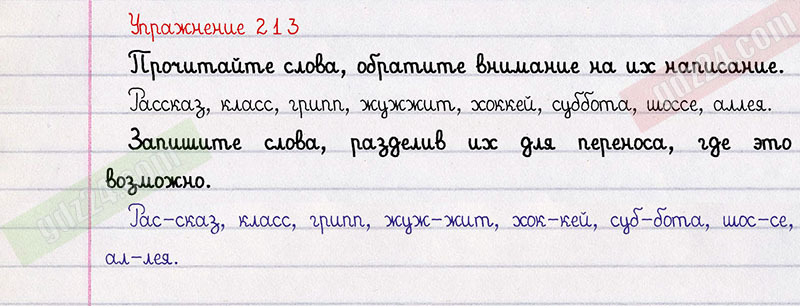 Упражнение 213
Прочитайте слова, обратите внимание на их написание.
Рассказ, класс, грипп, жужжит, хоккей, суббота, шоссе, аллея.
Запишите слова, разделив их для переноса, где это
возможно.
Рас-сказ, класс, грипп, жуж-жит, хок-кей, суб-бота, шос-се,
ал-лея.
gdz24.com
gdz24.com